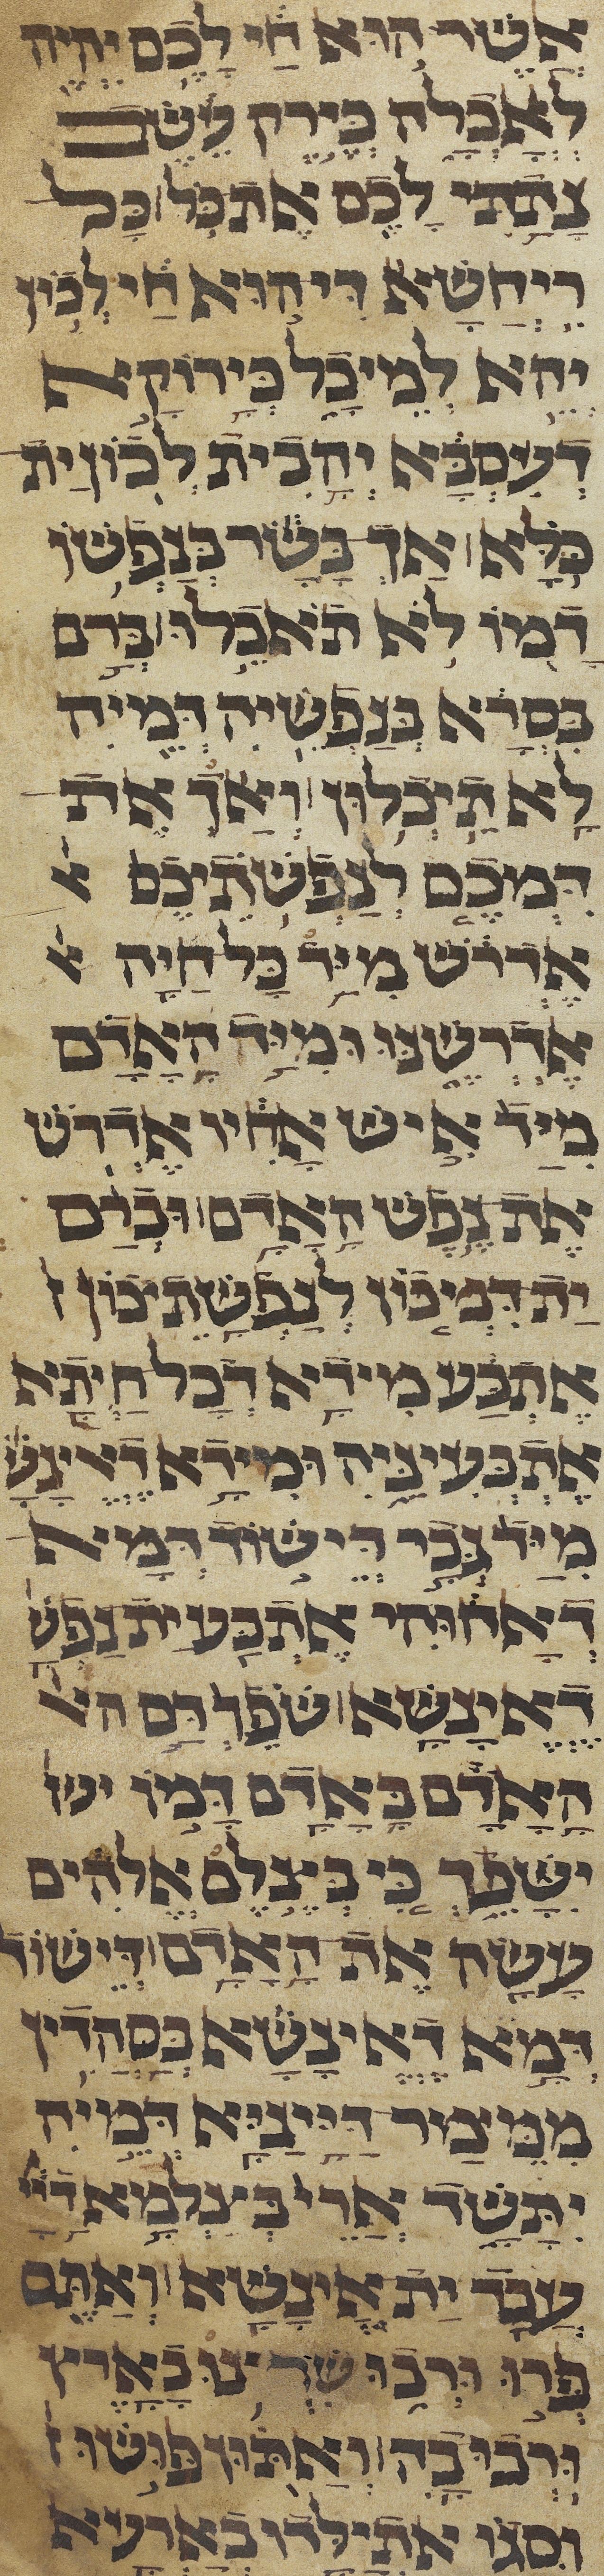 אֲשֶׁר הוּא חַי לָכֶם יִהְיֶה
לְאָכְלָה כְּיֶרֶק עֵשֶׂב
נָתַתִּי לָכֶם אֶת כֹּל׀ כָּל
רִיחְשָׁא דִּי הוּא חַי לְכוֹן
יְהֵא לְמֵיכַל כְּיָרוֹקָא
דְעִסְבָּא יְהָבִית לְכוֹן יַת
כּוֹלָּא׀ אַךְ בָּשָׂר בְּנַפְשׁוֹ
דָמוֹ לֹא תֹאכֵלוּ׀ בְּרַם
בִּסְרָא בְּנַפְשֵׁיהּ דְּמֵיהּ
לָא תֵיכְלוּן׀ וְאַךְ אֶת
דִּמְכֶם לְנַפְשֹׁתֵיכֶם א
אֶדְרֹשׁ מִיַּד כָּל חַיָּה א
אֶדְרְשֶׁנּוּ וּמִיַּד הָאָדָם
מִיַּד אִישׁ אָחִיו אֶדְרֹשׁ
אֶת נֶפֶשׁ הָאָדָם׀ וּבְרַם
יַת דִּמְכוֹן לְנַפְשָׁתֵיכוֹן ו
אֶתְבַּע מִידָא דְכָל חַיְתָא
אֶתְבְּעִינֵּיהּ וּמִידָא דֶאֱינָשָׁא
מִיַּד גְּבַר דְּיֵשׁוֹד דְּמָא
דְאָחוּהִי אֶתְבַּע יַת נַפְשָׁא
דֶאֱינָשָׁא׀ שֹׁפֵךְ דַּם הא
הָאָדָם בָּאָדָם דָּמוֹ יש
יִשָּׁפֵךְ כִּי בְּצֶלֶם אֱלֹהִים
עָשָׂה אֶת הָאָדָם׀ דְּיֵשׁוֹד
דְּמָא דֶאֱינָשָׁא בְּסָהֲדִין
מִמֵּימַר דַּיָּינַיָּא דְּמֵיהּ
יִתְּשַׁד אֲרֵי בְּצַלְמָא דַייָ
עֲבַד יַת אֱינָשָׁא׀ וְאַתֶּם
פְּרוּ וּרְבוּ שִׁרְצוּ בָאָרֶץ
וּרְבוּ בָהּ׀ וְאַתּוּן פּוּשׁוּ ו
וּסְגוֹ אִתְיַלַּדוּ בְאַרְעָא